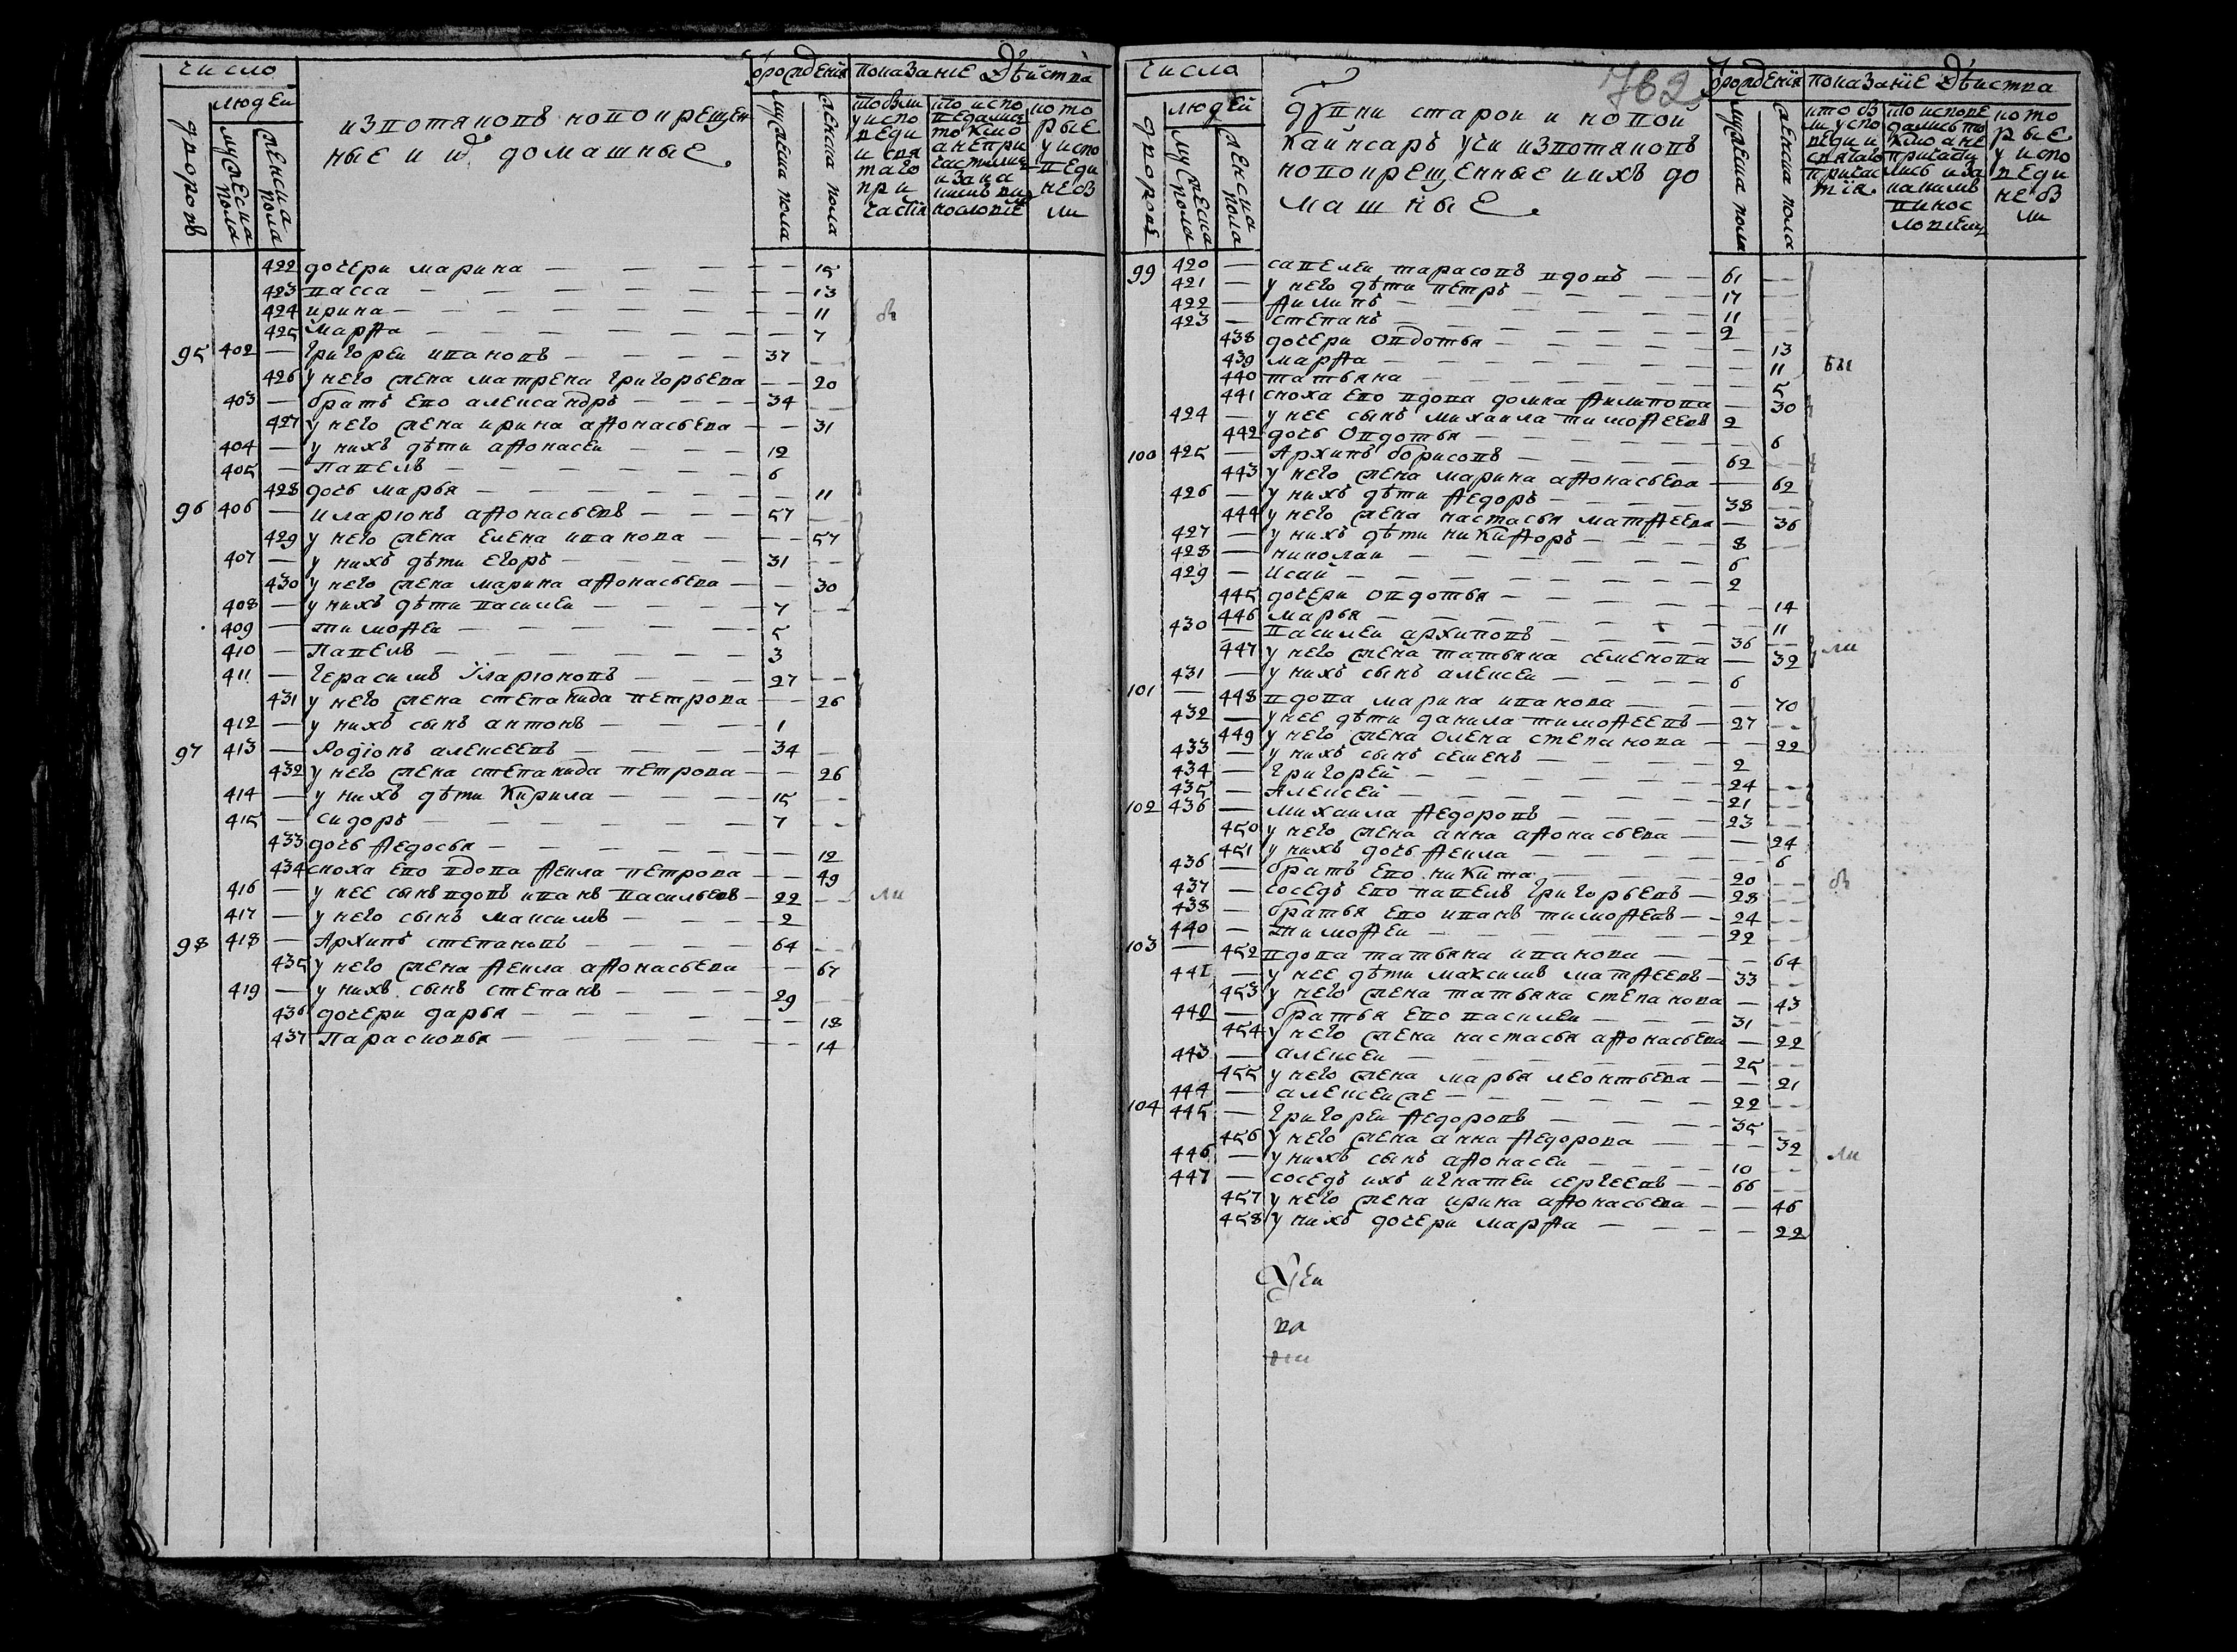 число
людей
дворовъ
мужеска пола
женска пола
изъ вотяковъ новокрещен
ные и ихъ домашные
от рождения
мужеска пола
женска пола
показание действа
кто были
у испо
веди
и свя
таго
при
частия
кто испо
ведался
токмо
а не при
частился
и за ка
кимъ ви
нословие
кото
рые
у испо
веди
не бы
ли
422 дочери марина — 15
423 васса — 13
424 ирина — 11
425 марѳа — 7
бы
95 402 — григореи ивановъ — 37
426 у него жена матрена григорьева — 20
403 — братъ ево александръ — 34
427 у него жена ирина аѳонасьева — 31
404 — у нихъ дѣти аѳонасеи — 12
405 — павелъ — 6
428 дочь марья — 11
96 406 — иларионъ аѳонасьевъ — 57
429 у него жена елена иванова — 57
407 — у нихъ дѣти егоръ — 31
430 у него жена марина аѳонасьева — 30
408 — у нихъ дѣти василеи — 7
409 — тимоѳеи — 5
410 — павелъ — 3
411 — герасимъ иларионовъ — 27
431 у него жена степанида петрова — 26
412 — у нихъ сынъ антонъ — 1
97 413 — родионъ алексеевъ — 34
432 у него жена степанида петрова — 26
414 — у нихъ дѣти кирила — 15
415 — сидоръ — 7
433 дочь ѳедосья — 12
434 сноха ево вдова ѳекла петрова — 49
416 — у нее сынъ вдовъ иванъ васильевъ — 22
ли
417 — у него сынъ максимъ — 2
98 418 — архипъ степановъ — 64
435 у него жена ѳекла аѳонасьева — 67
419 — у нихъ сынъ степанъ — 29
436 дочери дарья — 18
437 парасковья — 14
762
числа
людей
дворовъ
мужеска пола
женска пола
дрвни старои и новои
кайнсаръ учи изъ вотяковъ
новокрещенные и ихъ до
машные
от рождения
мужеска пола
женска пола
показание действа
кто бы
ли у испо
веди и
святаго
причас
тия
кто испове
дались то
кмо а не
причасти
лись и за
какимъ
винос
ловиемъ
кото
рые
у испо
веди
не бы
ли
99 420 — савелеи тарасовъ вдовъ — 61
421 — у него дѣти петръ — 17
422 — ѳилипъ — 11
423 — степанъ — 2
438 дочери овдотья — 13
439 марѳа — 11
бы
440 татьяна — 5
441 сноха ево вдова домна ѳилипова — 30
424 — у нее сынъ михаила тимоѳеевъ 2
442 дочь овдотья — 6
100 425 — архипъ борисовъ — 62
443 у него жена марина аѳонасьева — 62
426 — у нихъ дѣти ѳедоръ — 38
444 у него жена настасья матѳеева — 36
427 — у нихъ дѣти никиѳоръ — 8
428 — николаи — 6
429 — исаи — 2
445 дочери овдотья — 14
446 марья — 11
430 — василеи архиповъ — 36
447 у него жена татьяна семенова — 32
ли
431 — у нихъ сынъ алексеи — 6
101 — 448 вдова марина иванова — 70
432 — у нее дѣти данила тимоѳеевъ — 27
449 у него жена олена степанова — 22
433 — у нихъ сынъ семенъ — 2
434 — григореи — 24
435 — алексеи — 21
102 436 — михаила ѳедоровъ — 23
450 у него жена анна аѳонасьева — 24
451 у нихъ дочь ѳекла — 6
436 — братъ ево никита — 20
бы
437 — соседъ ево павелъ григорьевъ — 28
438 — братья ево иванъ тимоѳеевъ — 24
440 — тимоѳеи — 22
103 — 452 вдова татьяна иванова — 64
441 — у нее дѣти максимъ матѳеевъ — 33
453 у него жена татьяна степанова — 43
442 — братья ево василеи — 31
454 у него жена настасья аѳонасьева — 22
443 — алексеи — 25
455 у него жена марья леонтьева — 21
444 — алексеи же — 22
104 445 — григореи ѳедоровъ — 35
456 у него жена анна ѳедорова — 32
446 — у нихъ сынъ аѳонасеи — 10
ли
447 — соседъ ихъ игнатеи сергеевъ — 66
457 у него жена ирина аѳонасьева — 46
458 у нихъ дочери марѳа — 22
ва